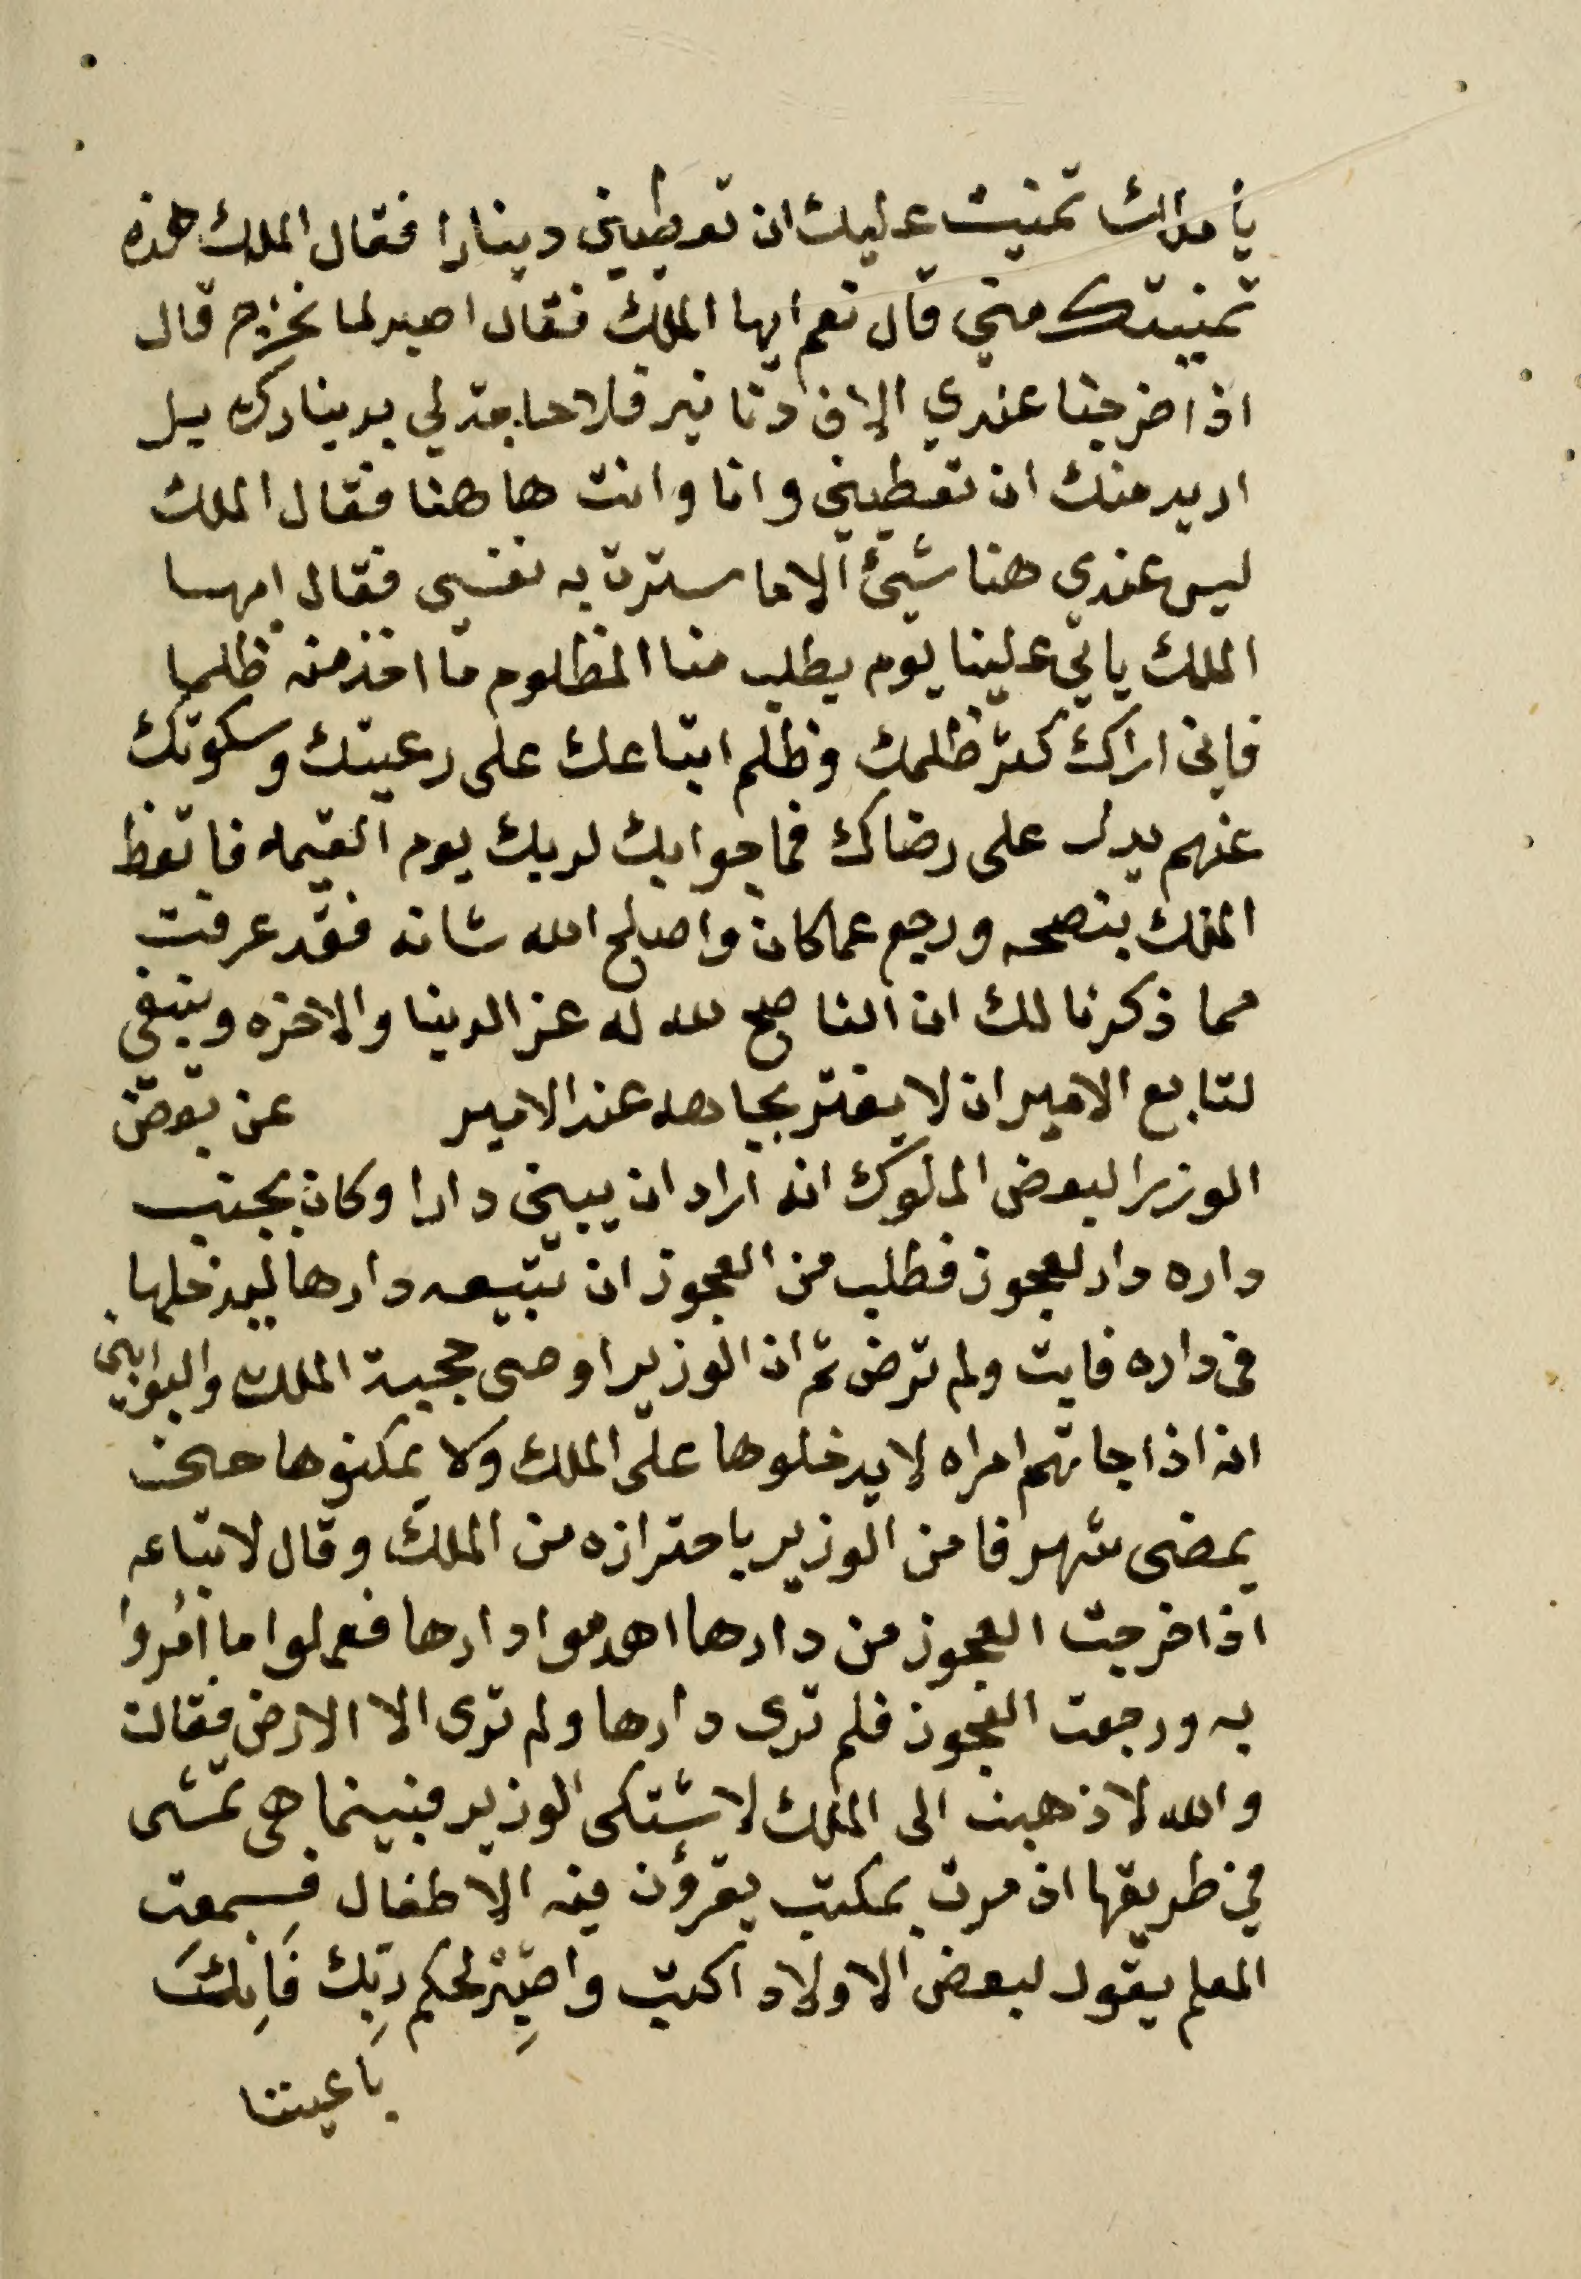 يا ملك تمنيت عليك ان تعطيني دينارا فقال الملك هذه
تمنيتك مني قال نعم ايها الملك فقال اصبر لما نخرج قال
اذا خرجنا عندي الاف دنانير فلا حاجة لي بدينارك بل
اريد منك ان تعطيني وانا وانت ها هنا فقال الملك
ليس عندي هنا شيئ الا ما سترت به نفسي فقال ايها
الملك ياتي علينا يوم يطلب منا المظلوم ما اخذ منه ظلما
فاني اراك كثر ظلمك وظلم اتباعك على رعيتك وسكوتك
عنهم يدل على رضاك فما جوابك لربك يوم القيمه فاتعظ
الملك بنصحه ورجع عما كان واصلح الله شانه فقد عرفت
مما ذكرنا لك ان الناصح لله له عز الدنيا والاخره وينبغي
لتابع الامير ان لا يغتر بجاهه عند الامير عن بعض
الوزرا لبعض الملوك انه اراد ان يبني دارا وكان بجنب
داره دار لعجوز فطلب من العجوز ان تبيعه دارها ليدخلها
في داره فابت ولم ترض ثم ان الوزير اوصى حجبة الملك والبوابين
انه اذا جاتهم امراه لا يدخلوها على الملك ولا يمكنوها حتى
يمضى شهر فامن الوزير باحترازه من الملك وقال لاتباعه
اذا خرجت العجوز من دارها اهدموا دارها فعملوا ما امروا
به ورجعت العجوز فلم ترى دارها ولم ترى الا الارض فقالت
والله لاذهبن الى الملك لاشتكى الوزير فبينما هي تمشى
في طريقها اذ مرت بمكتب يقرؤن فيه الاطفال فسمعت
المعلم يقول لبعض الاولاد اكتب واصبر لحكم ربك فانك
باعيننا